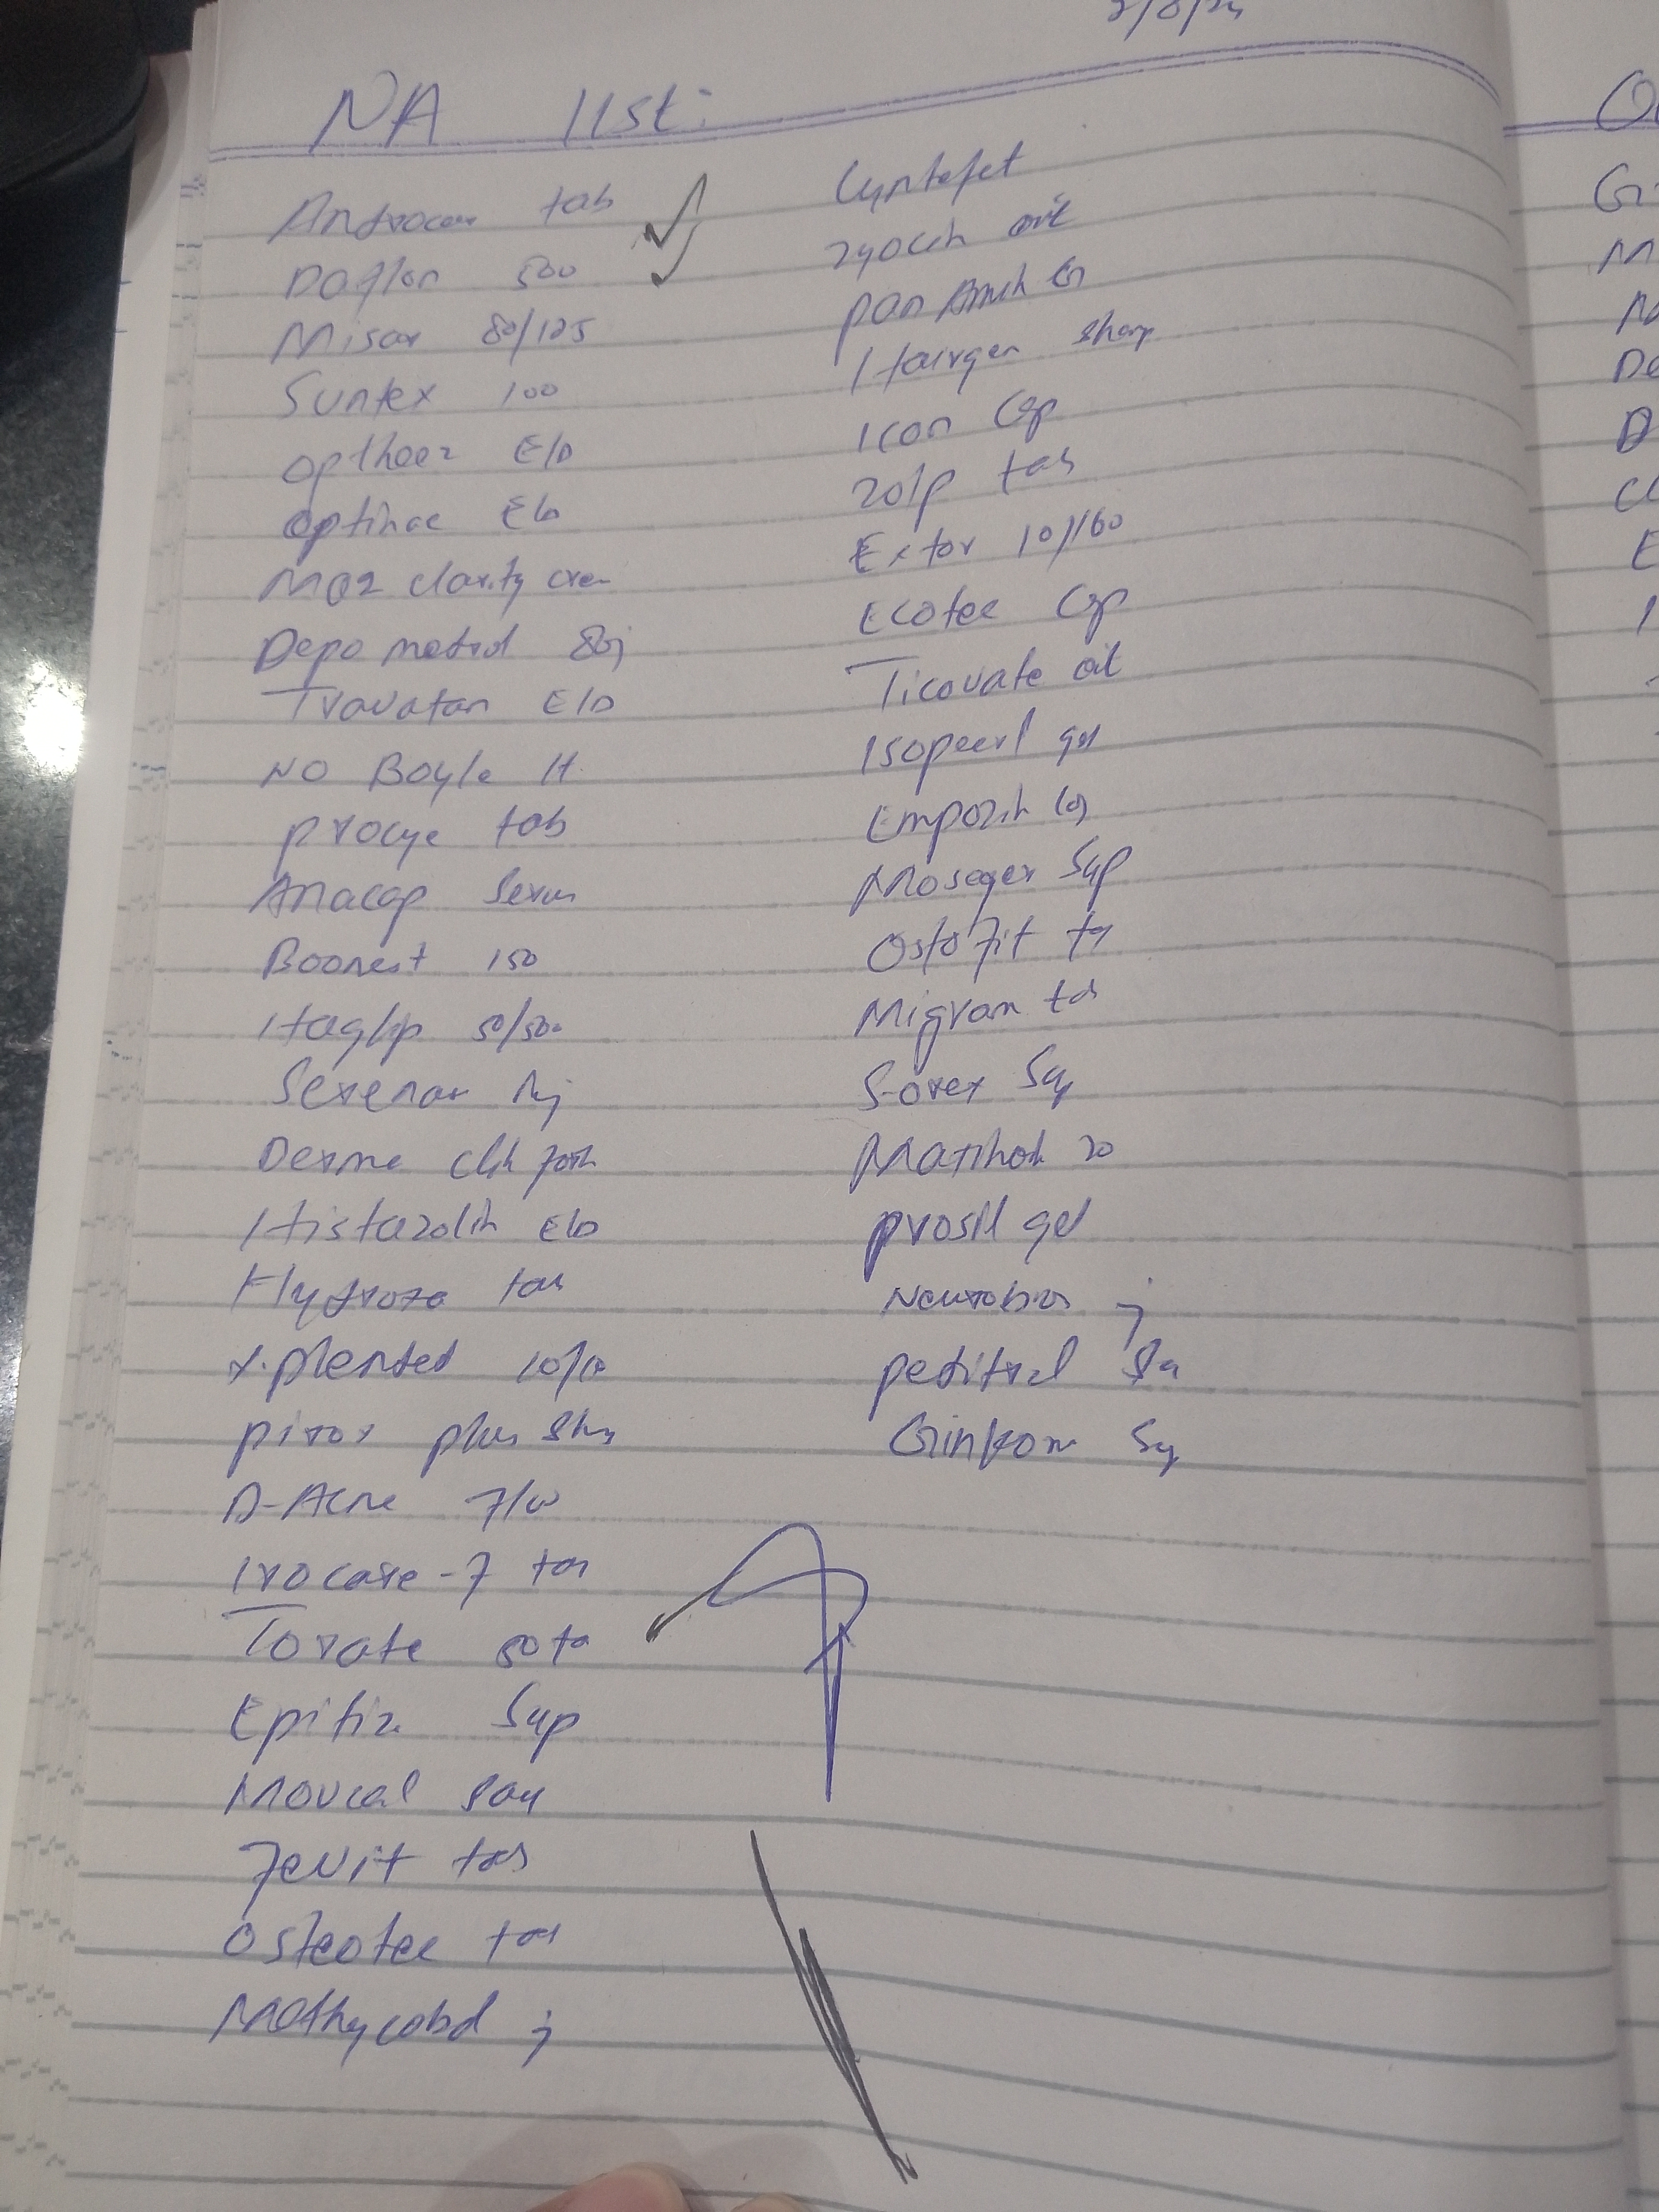 NA list:
Androcare tab
Daflon 500
Misar 80/125
Suntex 100
optheez E/D
Optinac E/D
MQ2 clarity cre
Depo medrol 80 j
Travatan E/D
NO Boyle H
procye tab
Anacap Serum
Boonest 150
Itaglip 50/500
Serenar Inj
Derma
Histazolin E/D
Hydroxa tab
X-plended 10/10
pirox plus
D-Acne F/W
Irocare-F tab
Torate 50 ta
Epitiz Syp
Movcal Say
Fevit tab
Osteotec tab
Methycobal j
Cyntofet
zyocin oint
pan
Hairgen shamp
Icon Cap
Zolp tab
Extor 10/160
Ecotec Cap
Ticovate oit
Isopeerl gel
Empozin
Moseger Syp
Ostofit ta
Migran tab
S-orex Syp
20
prosil gel
Neurobion j
peditral Sa
Ginkom Sy